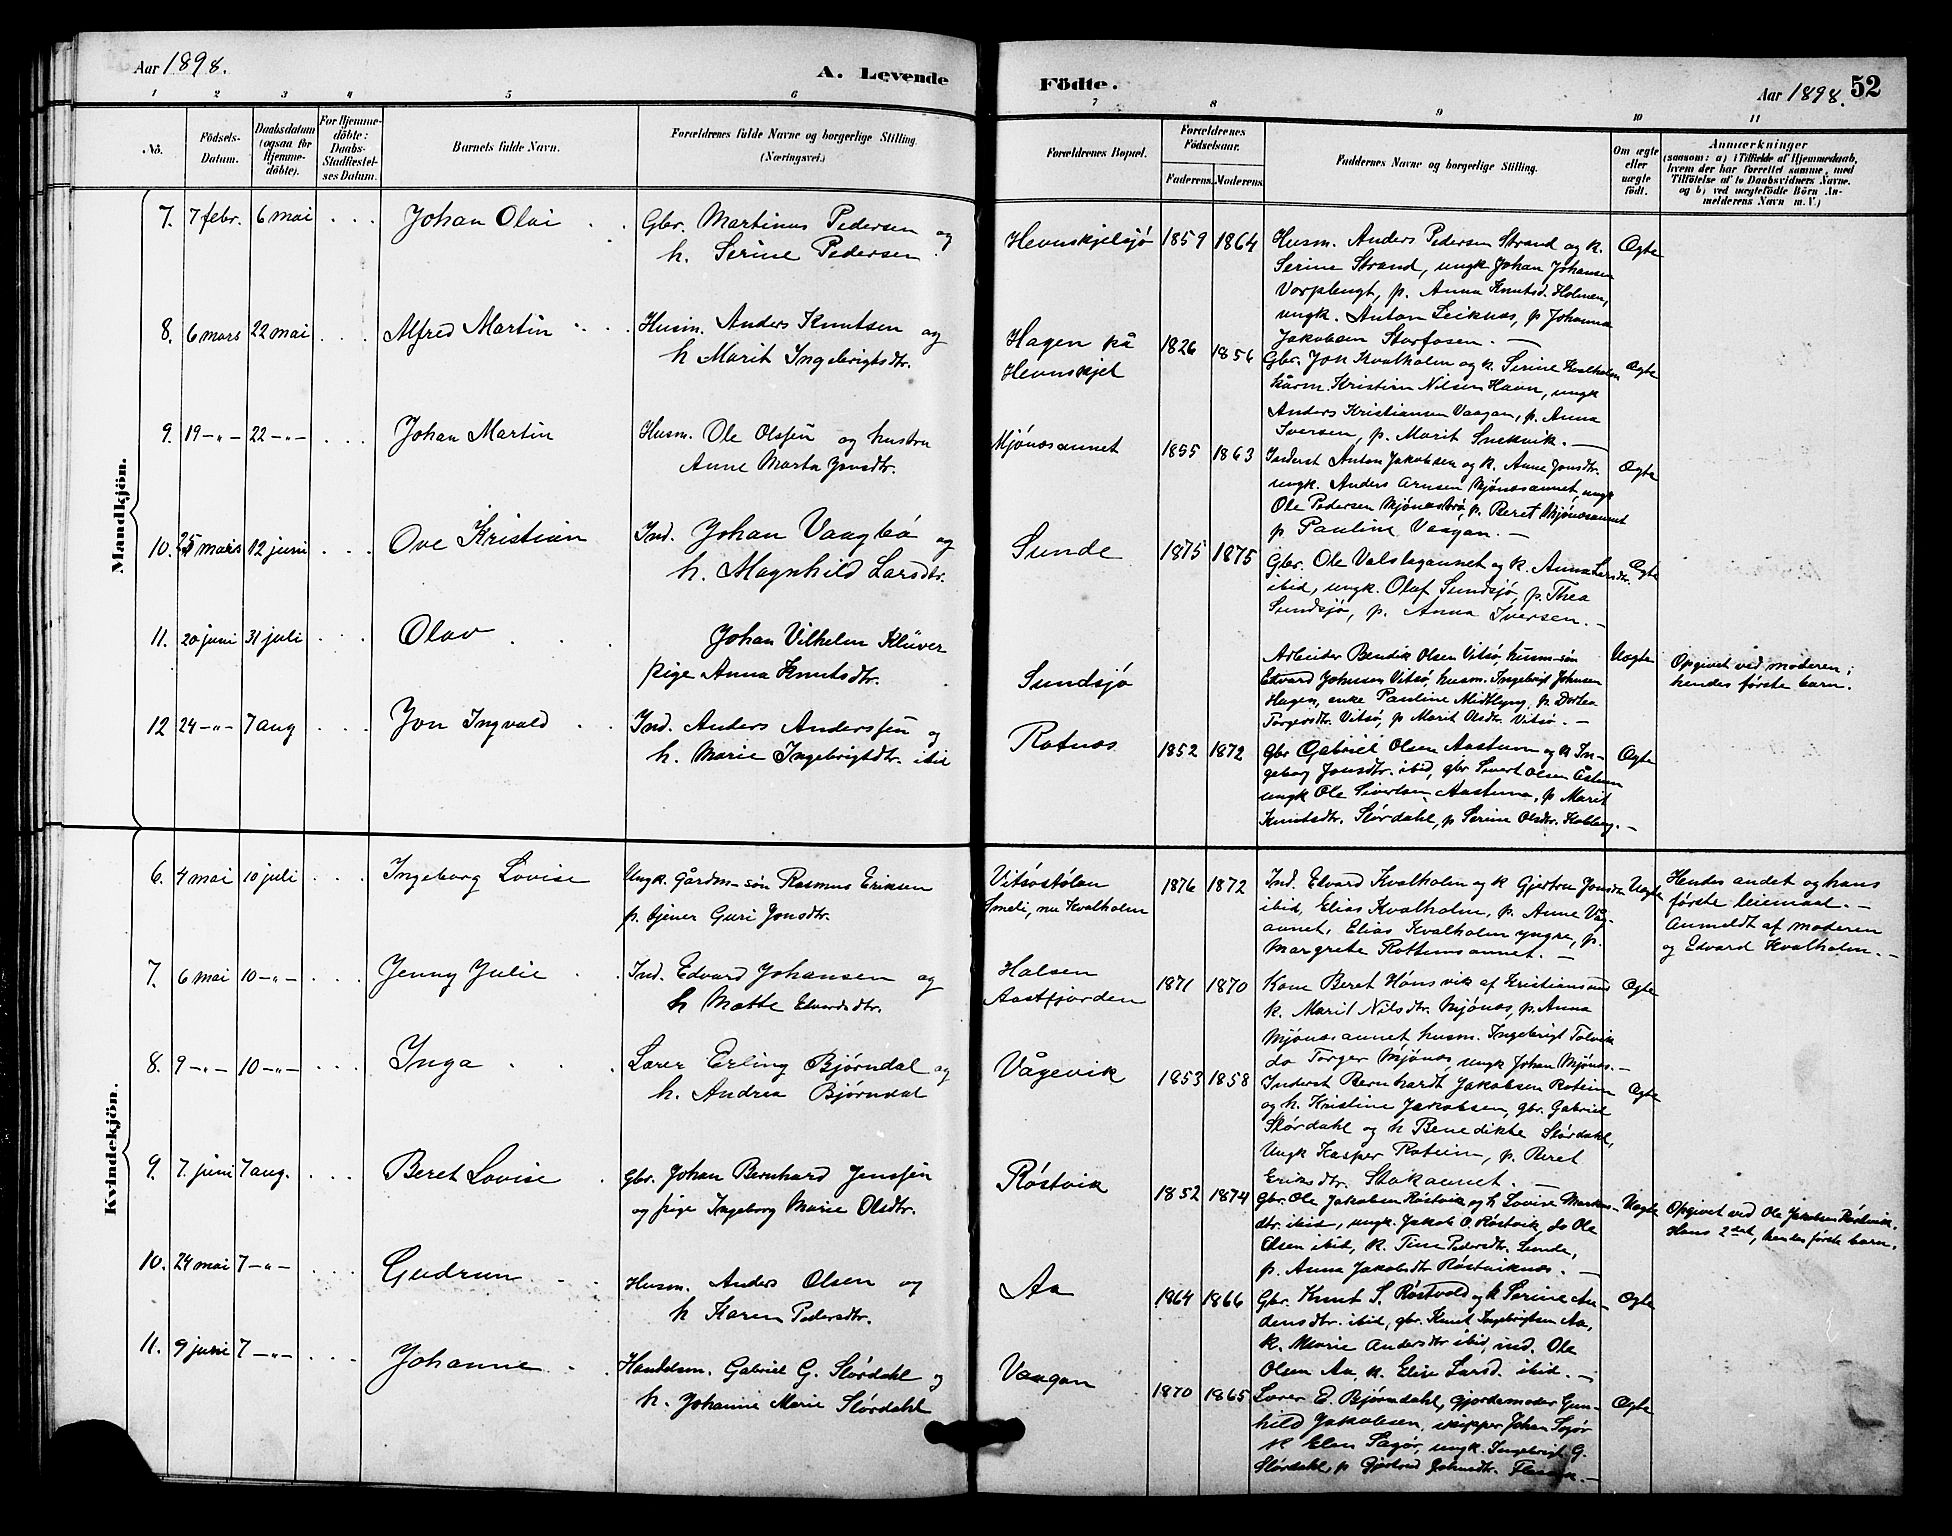 Aar 1898.
A. Levende
Födte.
Aar 1898.
52
1 2 3 4 5 6 7 8 9 10 11
No.
Födsels-Datum.
Daabsdatum (ogsaa for Hjemme-döbte).
For Hjemme-döbte: Daabs-Stadfæstel-ses Datum.
Barnets fulde Navn.
Forældrenes fulde Navne og borgerlige Stilling. (Næringsvei.)
Forældrenes Bopæl.
Forældrenes Födselsaar.
Faderens. Moderens.
Faddernes Navne og borgerlige Stilling.
Om ægte eller uægte født.
Anmærkninger
(saasom: a) i Tilfælde af Hjemmedaab,
hvem der har forrettet samme, med
Tilföielse af to Daabsvidners Navne.
og b) ved uægtefödte Börn An-
melderens Navn m. V.)
Mandkjön.
7. 7 febr. 6 mai Johan Olai
Gbr. Martinus Pedersen og
h. Serine Pedersen.
Hevnskjelsjø 1859 1864
Husm. Anders Pedersen Strand og k.
Serine Strand, ungk Johan Johansen
p. Anna Knutsd. Holmen,
ungk. Anton Leiknes, p. Johanna
Jakobsen Storfosen. —
Ægte
8. 6 mars 22 mai Alfred Martin
Husm. Anders Knutsen og
h Marit Ingebrigtsdtr.
Hagen på
Hevnskjel
1826 1856
Gbr. Jon Kvalholm og k. Serine Kvalholm
kårm. Kristian Nilsen Havn, ungk
Anders Kristiansen Vaagan, p. Anna
Iversen, p. Marit Snekvik. —
Ægte
9. 19 -"- 22 -"- Johan Martin
Husm. Ole Olssen og hustru
Anne Marta Jonsdtr.
Mjønesaunet 1855 1863
Inderst Anton Jakobsen og k. Anne Jonsdtr.
ungk. Anders Arnsen Mjønesaunet, ungk
Ole Pedersen Mjønesbrø, p. Beret Mjønesaunet
p Pauline Vaagan. —
Ægte
10. 25 mars 12 juni Ove Kristian
Ind. Johan Vaagbø og
h. Magnhild Larsdtr.
Sunde 1875 1875
Gbr. Ole Valslagaunet og k. Anna Larsdtr.
ibid, ungk. Olaf Sundsjø, p. Thea
Sundsjø, p. Anna Iversen. —
Ægte
11. 20 juni 31 juli Olav
Johan Vilhelm Klüver
pige Anna Knutsdtr.
Sundsjø
Arbeider Bendik Olsen Vitsø, husm-søn
Edvard Johnsen Vitsø, husm. Ingebrigt Johnsen
Hagen, enke Pauline Midtlyng, p. Dortea
Torgersdtr. Vitsø, p Marit Olsdtr. Vitsø. —
Uægte
Opgivet ved moderen;
hendes første barn.
12 24 -"- 7 aug Jon Ingvald
Ind. Anders Anderssen og
h. Marie Ingebrigtdtr. ibid
Rotnes 1852 1872
Gbr Gabriel Olsen Aastum og k In-
geborg Jonsdtr. ibid, gbr Sivert Olsen Åstum
ungk Ole Sivertsen Aastum, p Marit
Knutsdtr. Størdahl, p Serine Olsdtr. —
Ægte
Kvindekjön.
6. 4 mai 10 juli Ingeborg Lovise
Ungk. Gårdm-søn Rasmus Eriksen
p. tjener Guri Jonsdtr.
Vitsøstølan
Smeli, nu Kvalholm
1876 1872
Ind. Edvard Kvalholm og k Gjertru Jonsdtr
ibid, Elias Kvalholm, p. Anne Våg-
aunet, Elias Kvalholm yngre, p.
Margrete Rottemsaunet. —
Uægte
Hendes andet og hans
første leiermaal. —
Anmeldt af moderen
og Edvard Kvalholm. —
7. 6 mai 10 -"- Jenny Julie
Ind. Edvard Johansen og
h Mette Edvardsdtr.
Halsen
Aastfjorden
1871 1870
Kone Beret Hønsvik af Kristiansund
k. Marit Nilsdtr. Mjønes, p. Anna
Mjønesaunet husm. Ingebrigt Tolvik
do Torger Mjønes, ungk Johan Mjønes. —
Ægte
8. 9 -"- 10 -"- Inga
Lærer Erling Bjørndal og
h. Andrea Bjørndal
Vågevik 1853 1858
Inderst Bernhardt Jakobsen Roteim
og h. Kristine Jakobsen, gbr. Gabriel
Størdahl og h Benedikte Størdahl,
Ungk Kasper Roteim, p. Beret
Eriksdtr. Stokaunet. —
Ægte
9. 7. juni 7 aug. Beret Lovise
Gbr. Johan Bernhard Jenssen
og pige Ingeborg Marie Olsdtr.
Røstvik 1852 1874
Gbr. Ole Jakobsen Røstvik og h Lovise Markus-
dtr. ibid, ungk. Jakob O. Røstvik, do Ole
Olsen ibid, k. Tine Pedersdtr. Sunde,
p. Anna Jakobsdtr Røstviknes. —
Uægte
Opgivet ved Ole Jakobsen Røstvik.
Hans 2det, hendes første barn.
10. 24 mai 7 -"- Gudrun
Husm. Anders Olsen og
h Karen Pedersdtr.
Aa 1864 1866
Gbr. Knut S. Røstvold og k Serine An-
dersdtr. ibid, gbr. Knut Ingebrigtsen Aa,
k. Marie Andersdtr ibid, ind. Ole
Olsen Aa, k. Elise Larsd. ibid. —
Ægte
11. 9 juni 7 -"- Johanne
Handelsm. Gabriel G. Størdahl og
h. Johanne Marie Størdahl
Vaagan 1870 1865
Lærer E. Bjørndahl, gjordemoder Gun-
hild Jakobsen, skipper Johan Sagør
k Elen Sagør, ungk. Ingebrigt G.
Størdahl, p Gjertrud —
Ægte